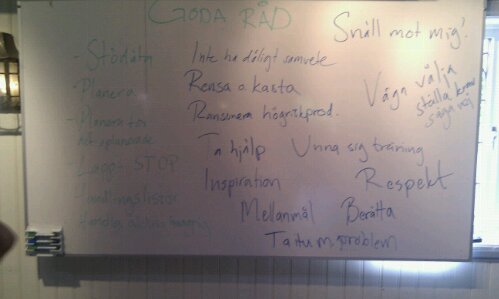 GODA RÅD
Snäll mot mig!
- Stödätn
- Planera
- Planera för
det oplanerade
Lapp: STOP
Handlingslistor
Inte ha dåligt samvete
Rensa o kasta
Ransonera högriskprod.
Ta hjälp
Unna sig träning
Inspiration
Mellanmål
Berätta
Ta itu m. problem
Våga välja
ställa krav
säga nej
Respekt